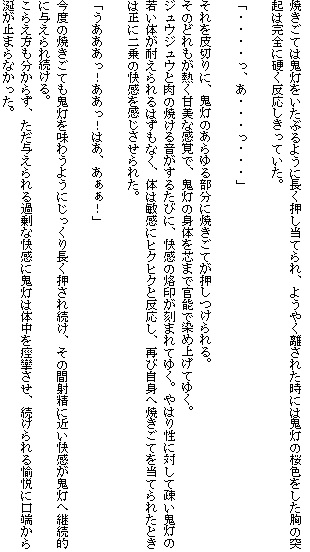 焼きごては鬼灯をいたぶるように長く押し当てられ、ようやく離された時には鬼灯の桜色をした胸の突
起は完全に硬く反応しきっていた。
「・・・・っ、あ・・・っ・・・」
それを皮切りに、鬼灯のあらゆる部分に焼きごてが押しつけられる。
そのどれもが熱く甘美な感覚で、鬼灯の身体を芯まで官能で染め上げてゆく。
ジュウジュウと肉の焼ける音がするたびに、快感の烙印が刻まれてゆく。やはり性に対して疎い鬼灯の
若い体が耐えられるはずもなく、体は敏感にヒクヒクと反応し、再び自身へ焼きごてを当てられたとき
は正に二乗の快感を感じさせられた。
「うあああっ！ああっ！はあ、あぁぁ！」
今度の焼きごても鬼灯を味わうようにじっくり長く押され続け、その間射精に近い快感が鬼灯へ継続的
に与えられ続ける。
こらえ方も分からず、ただ与えられる過剰な快感に鬼灯は体中を痙攣させ、続けられる愉悦に口端から
涎が止まらなかった。